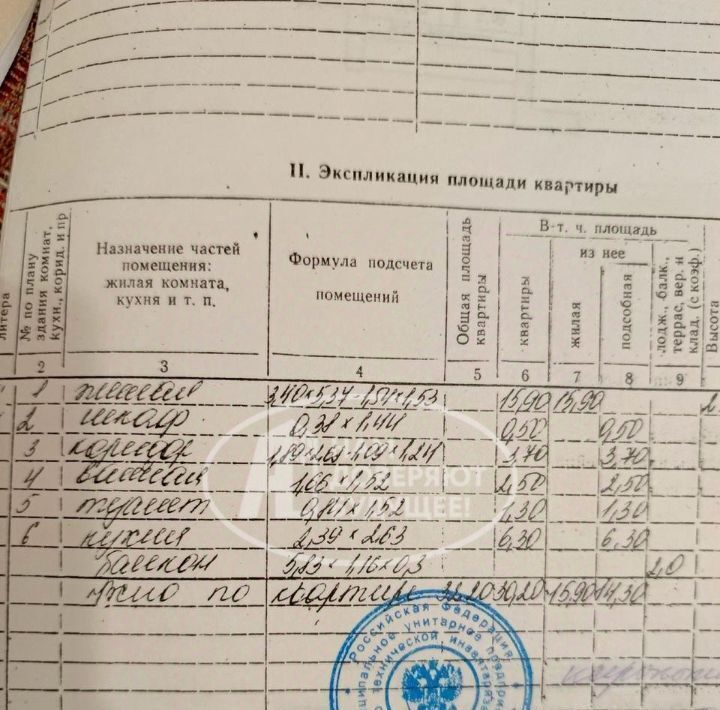 II. Экспликация площади квартиры
литера
№ по плану здания комнат, кухн., корид. и пр
Назначение частей помещения: жилая комната, кухня и т. п.
Формула подсчета помещений
Общая площадь квартиры
В т. ч. площадь
из нее
квартиры
жилая
подсобная
лодж., балк., террас, вер. и клад. (с коэф.)
Высота
2 3 4 5 6 7 8 9
1 жилая 3,40×5,37-1,51×1,53 15,90 15,90 2
2 шкаф 0,38×1,44 0,50 0,50
3 коридор 3,70 3,70
4 ванная 1,66×1,52 2,50 2,50
5 туалет 1,30 1,30
6 кухня 2,39×2,63 6,30 6,30
балкон 5,83×1,16×0,3 2,0
Итого по квартире 32,20 30,20 15,90 14,30
Российская Федерация
унитарное предпри
технической инвентариза
ПРОВЕРЯЮТ